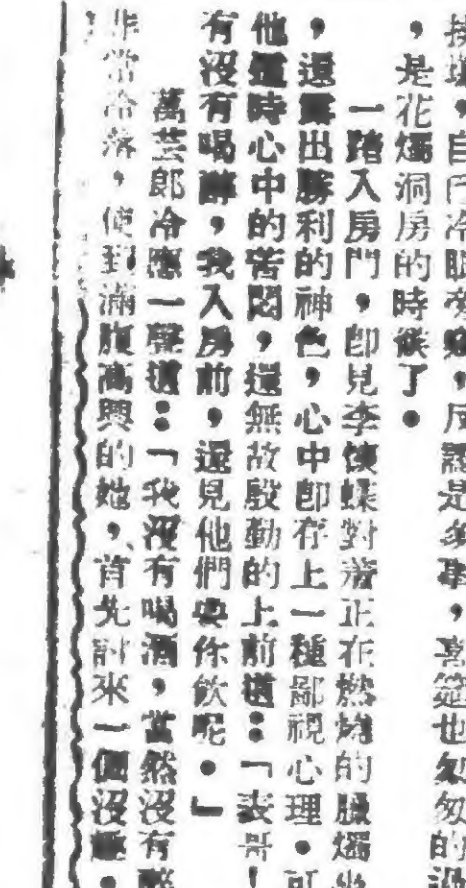 ，自冷眼旁，反是多事，喜筵也匆匆的
，是花燭洞房的時候了。
一踏入房門，即見李蝶對着正在燃燒的臘燭坐
，還露出勝利的神色，心中即存上一種鄙視心理。可
他這時心中的苦悶，還無故殷勤的上前道：「表哥！
有沒有喝醉，我入房前，還見他們要你飲呢。」
萬芸郎冷應一聲道：「我沒有喝酒，當然沒有醉
非常冷落，使到滿腹高興的她，首先討來一個沒趣。